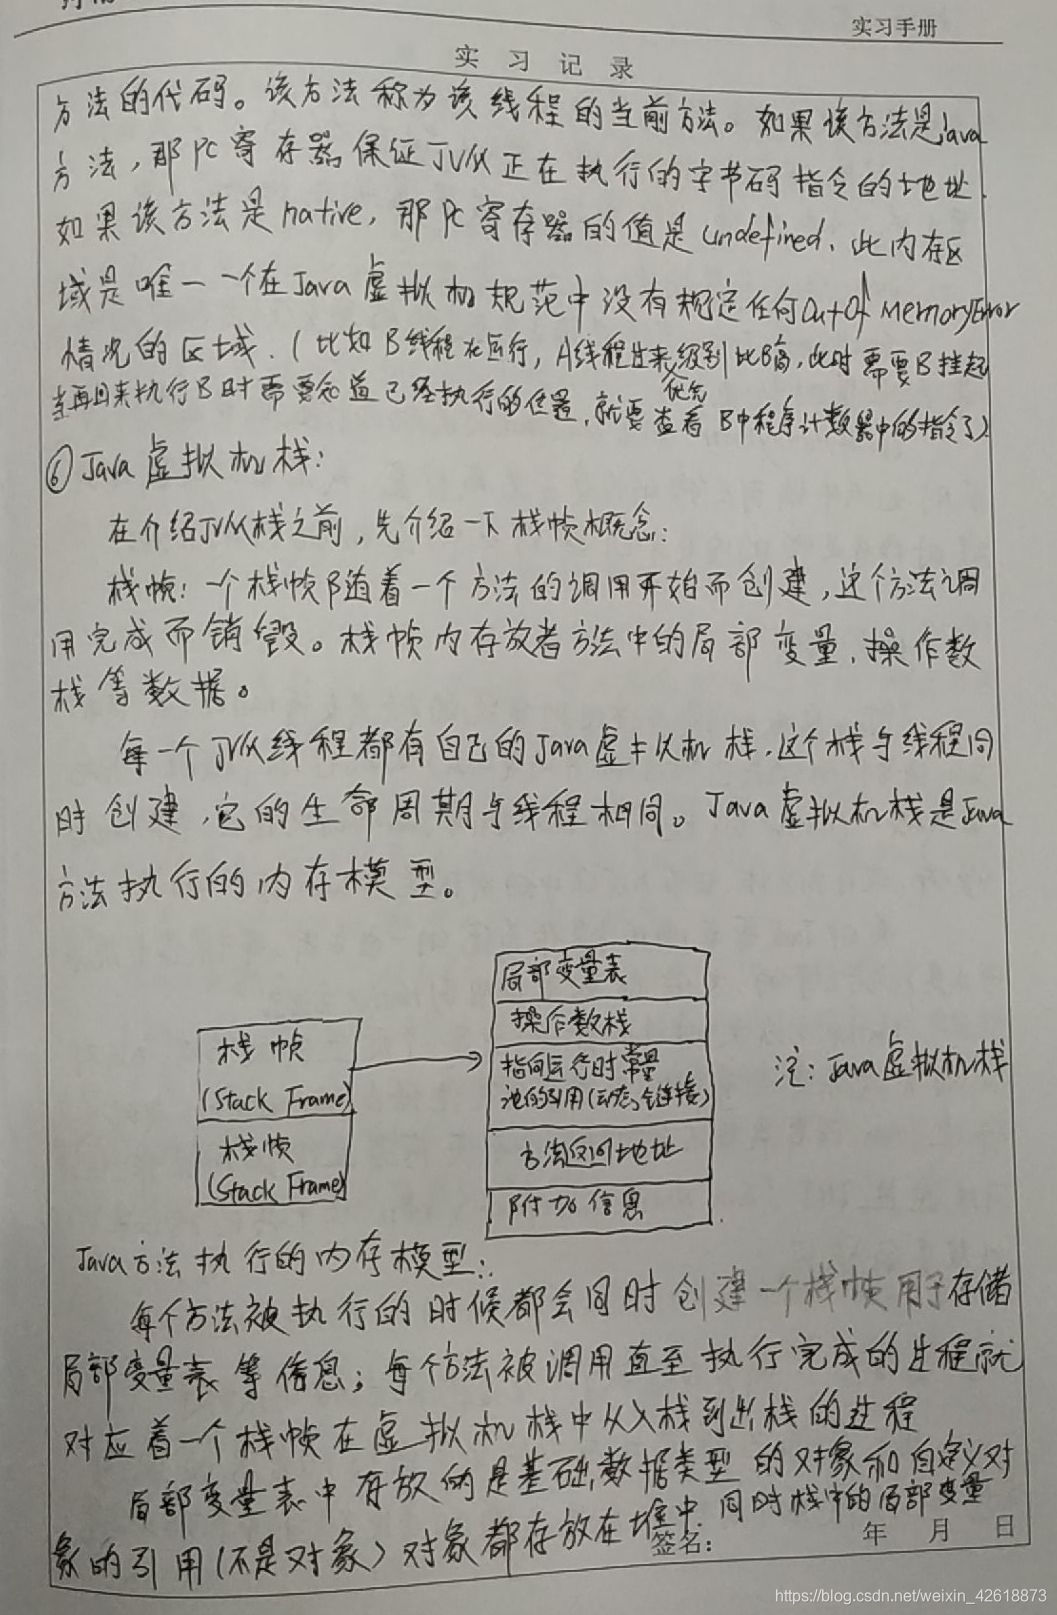 实习手册
实习记录
方法的代码。该方法称为该线程的当前方法。如果该方法是java
方法，那PC寄存器保证JVM正在执行的字节码指令的地址.
如果该方法是native，那PC寄存器的值是undefined、此内存区
域是唯一一个在Java虚拟机规范中没有规定任何OutOfMemoryError
情况的区域.（比如B线程在运行，A线程进来级别比B高，此时需要B挂起
优先
当再回来执行B时需要知道已经执行的位置，就要查看B中程序计数器中的指令了）
⑥Java虚拟机栈：
在介绍JVM栈之前，先介绍一下栈帧概念：
栈帧：一个栈帧随着一个方法的调用开始而创建，这个方法调
用完成而销毁。栈帧内存放者方法中的局部变量，操作数
栈等数据。
每一个JVM线程都有自己的Java虚拟机栈，这个栈与线程同
时创建，它的生命周期与线程相同。Java虚拟机栈是Java
方法执行的内存模型。
栈帧
(Stack Frame)
栈帧
(Stack Frame)
局部变量表
操作数栈
指向运行时常量
池的引用(动态链接)
方法返回地址
附加信息
注：Java虚拟机栈
Java方法执行的内存模型：
每个方法被执行的时候都会同时创建一个栈帧用于存储
局部变量表等信息；每个方法被调用直至执行完成的过程就
对应着一个栈帧在虚拟机栈中从入栈到出栈的过程
局部变量表中存放的是基础数据类型的对象和自定义对
象的引用(不是对象）对象都存放在堆中.同时栈中的局部变量
签名：
年 月 日
https://blog.csdn.net/weixin_42618873